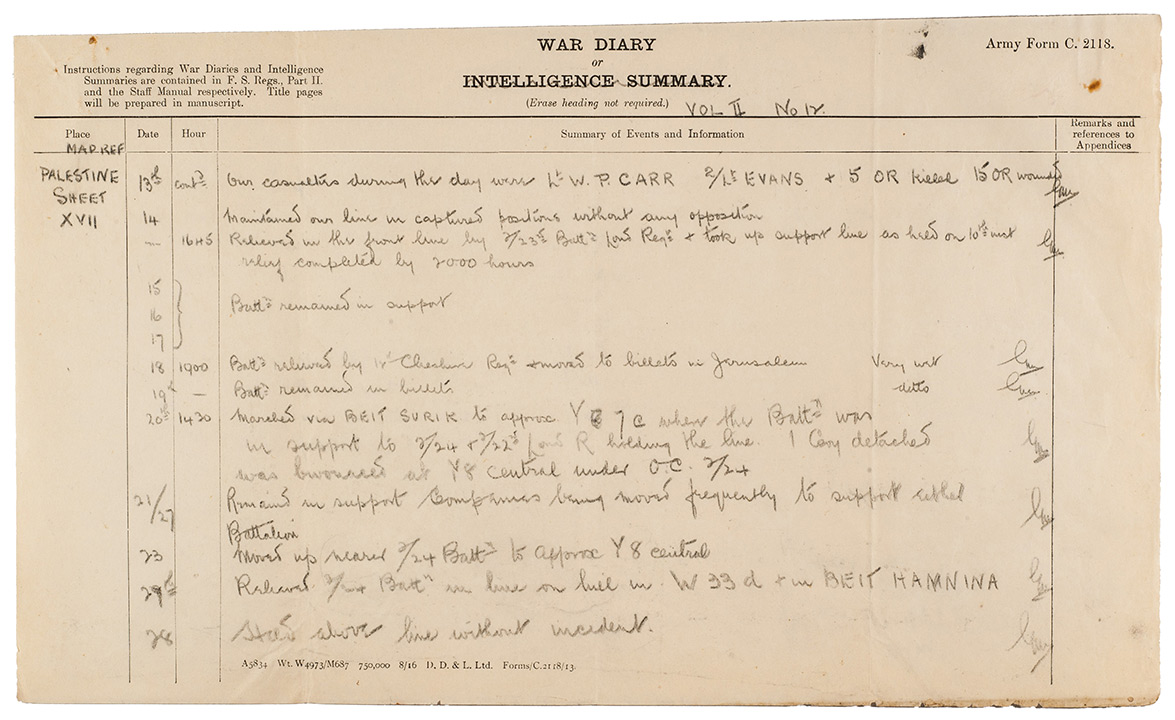 WAR DIARY
or
INTELLIGENCE SUMMARY.
(Erase heading not required.)
Army Form C. 2118.
Instructions regarding War Diaries and Intelligence
Summaries are contained in F. S. Regs., Part II.
and the Staff Manual respectively. Title pages
will be prepared in manuscript.
VOL II No 12.
Place Date Hour Summary of Events and Information Remarks and references to Appendices
MAP REF
PALESTINE SHEET XVII
13th contd Our casualties during the day were Lt W. P. CARR 2/Lt EVANS + 5 OR killed 15 OR wounded
14 Maintained our line in captured positions without any opposition
— 1645 Relieved in the front line by 2/23rd Battn Lond Regt + took up support line as held on 10th inst
relief completed by 2000 hours
15
16 Battn remained in support
17
18 1900 Battn relieved by Cheshire Regt + moved to billets in Jerusalem Very wet
19th — Battn remained in billets ditto
20th 1430 Marched via BEIT SURIK to approx Y 7 c where the Battn was
in support to 2/24 & 2/22nd Lond R holding the line. 1 Coy detached
was bivouaced at Y8 central under O.C. 2/24
21/27 Remained in support Companies being moved frequently to support either
Battalion
23 Moved up nearer 2/24 Battn to approx Y 8 central
Relieved 2/24 Battn in line on hill in W 33 d + in BEIT HANNINA
28 Held above line without incident.
A5834 Wt. W4973/M687 750,000 8/16 D. D. & L. Ltd. Forms/C.2118/13.